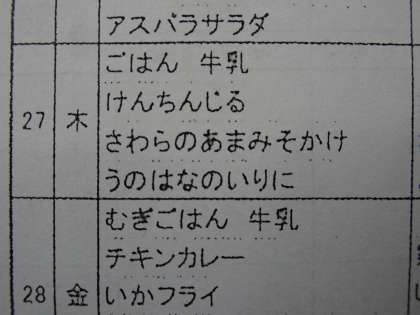 アスパラサラダ
ごはん 牛乳
けんちんじる
27 木
さわらのあまみそかけ
うのはなのいりに
むぎごはん 牛乳
チキンカレー
28 金 いかフライ